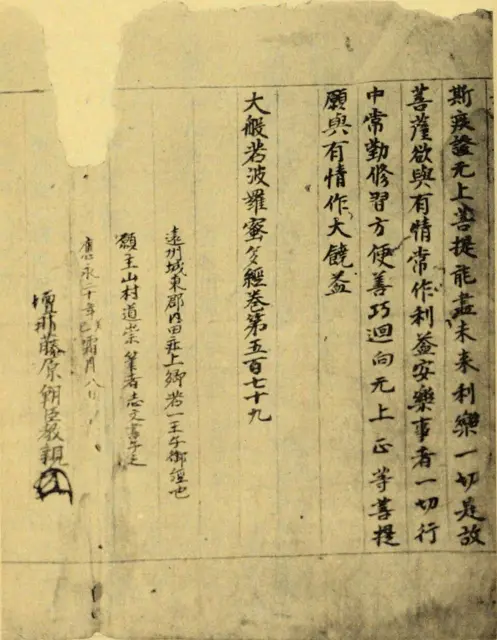 斯疾證无上菩提能盡未来利樂一切是故
菩薩欲與有情常作利益安樂事者一切行
中常勤修習方便善巧迴向无上正等菩提
願與有情作大饒益
大般若波羅蜜多經巻第五百七十九
遠州城東郡内田庄上郷若一王子御経也
額王山村道崇筆者志文書年之
應永二十年巳霜月八日
藤原朝臣教親